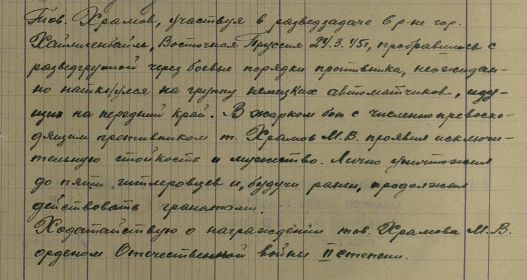 Тов. Храмов, участвуя в разведзадаче в р-не гор.
Хайлигенбайль, Восточная Пруссия 24.3.45г, пробравшись с
разведгруппой через боевые порядки противника, неожидан-
но наткнулся на группу немецких автоматчиков, иду-
щих на передний край. В жарком бою с численно превосхо-
дящим противником т. Храмов М.В. проявил исключи-
тельную стойкость и мужество. Лично уничтожил
до пяти гитлеровцев и, будучи ранен, продолжал
действовать гранатами.
Ходатайствую о награждении тов. Храмова М.В.
орденом Отечественной войны II степени.